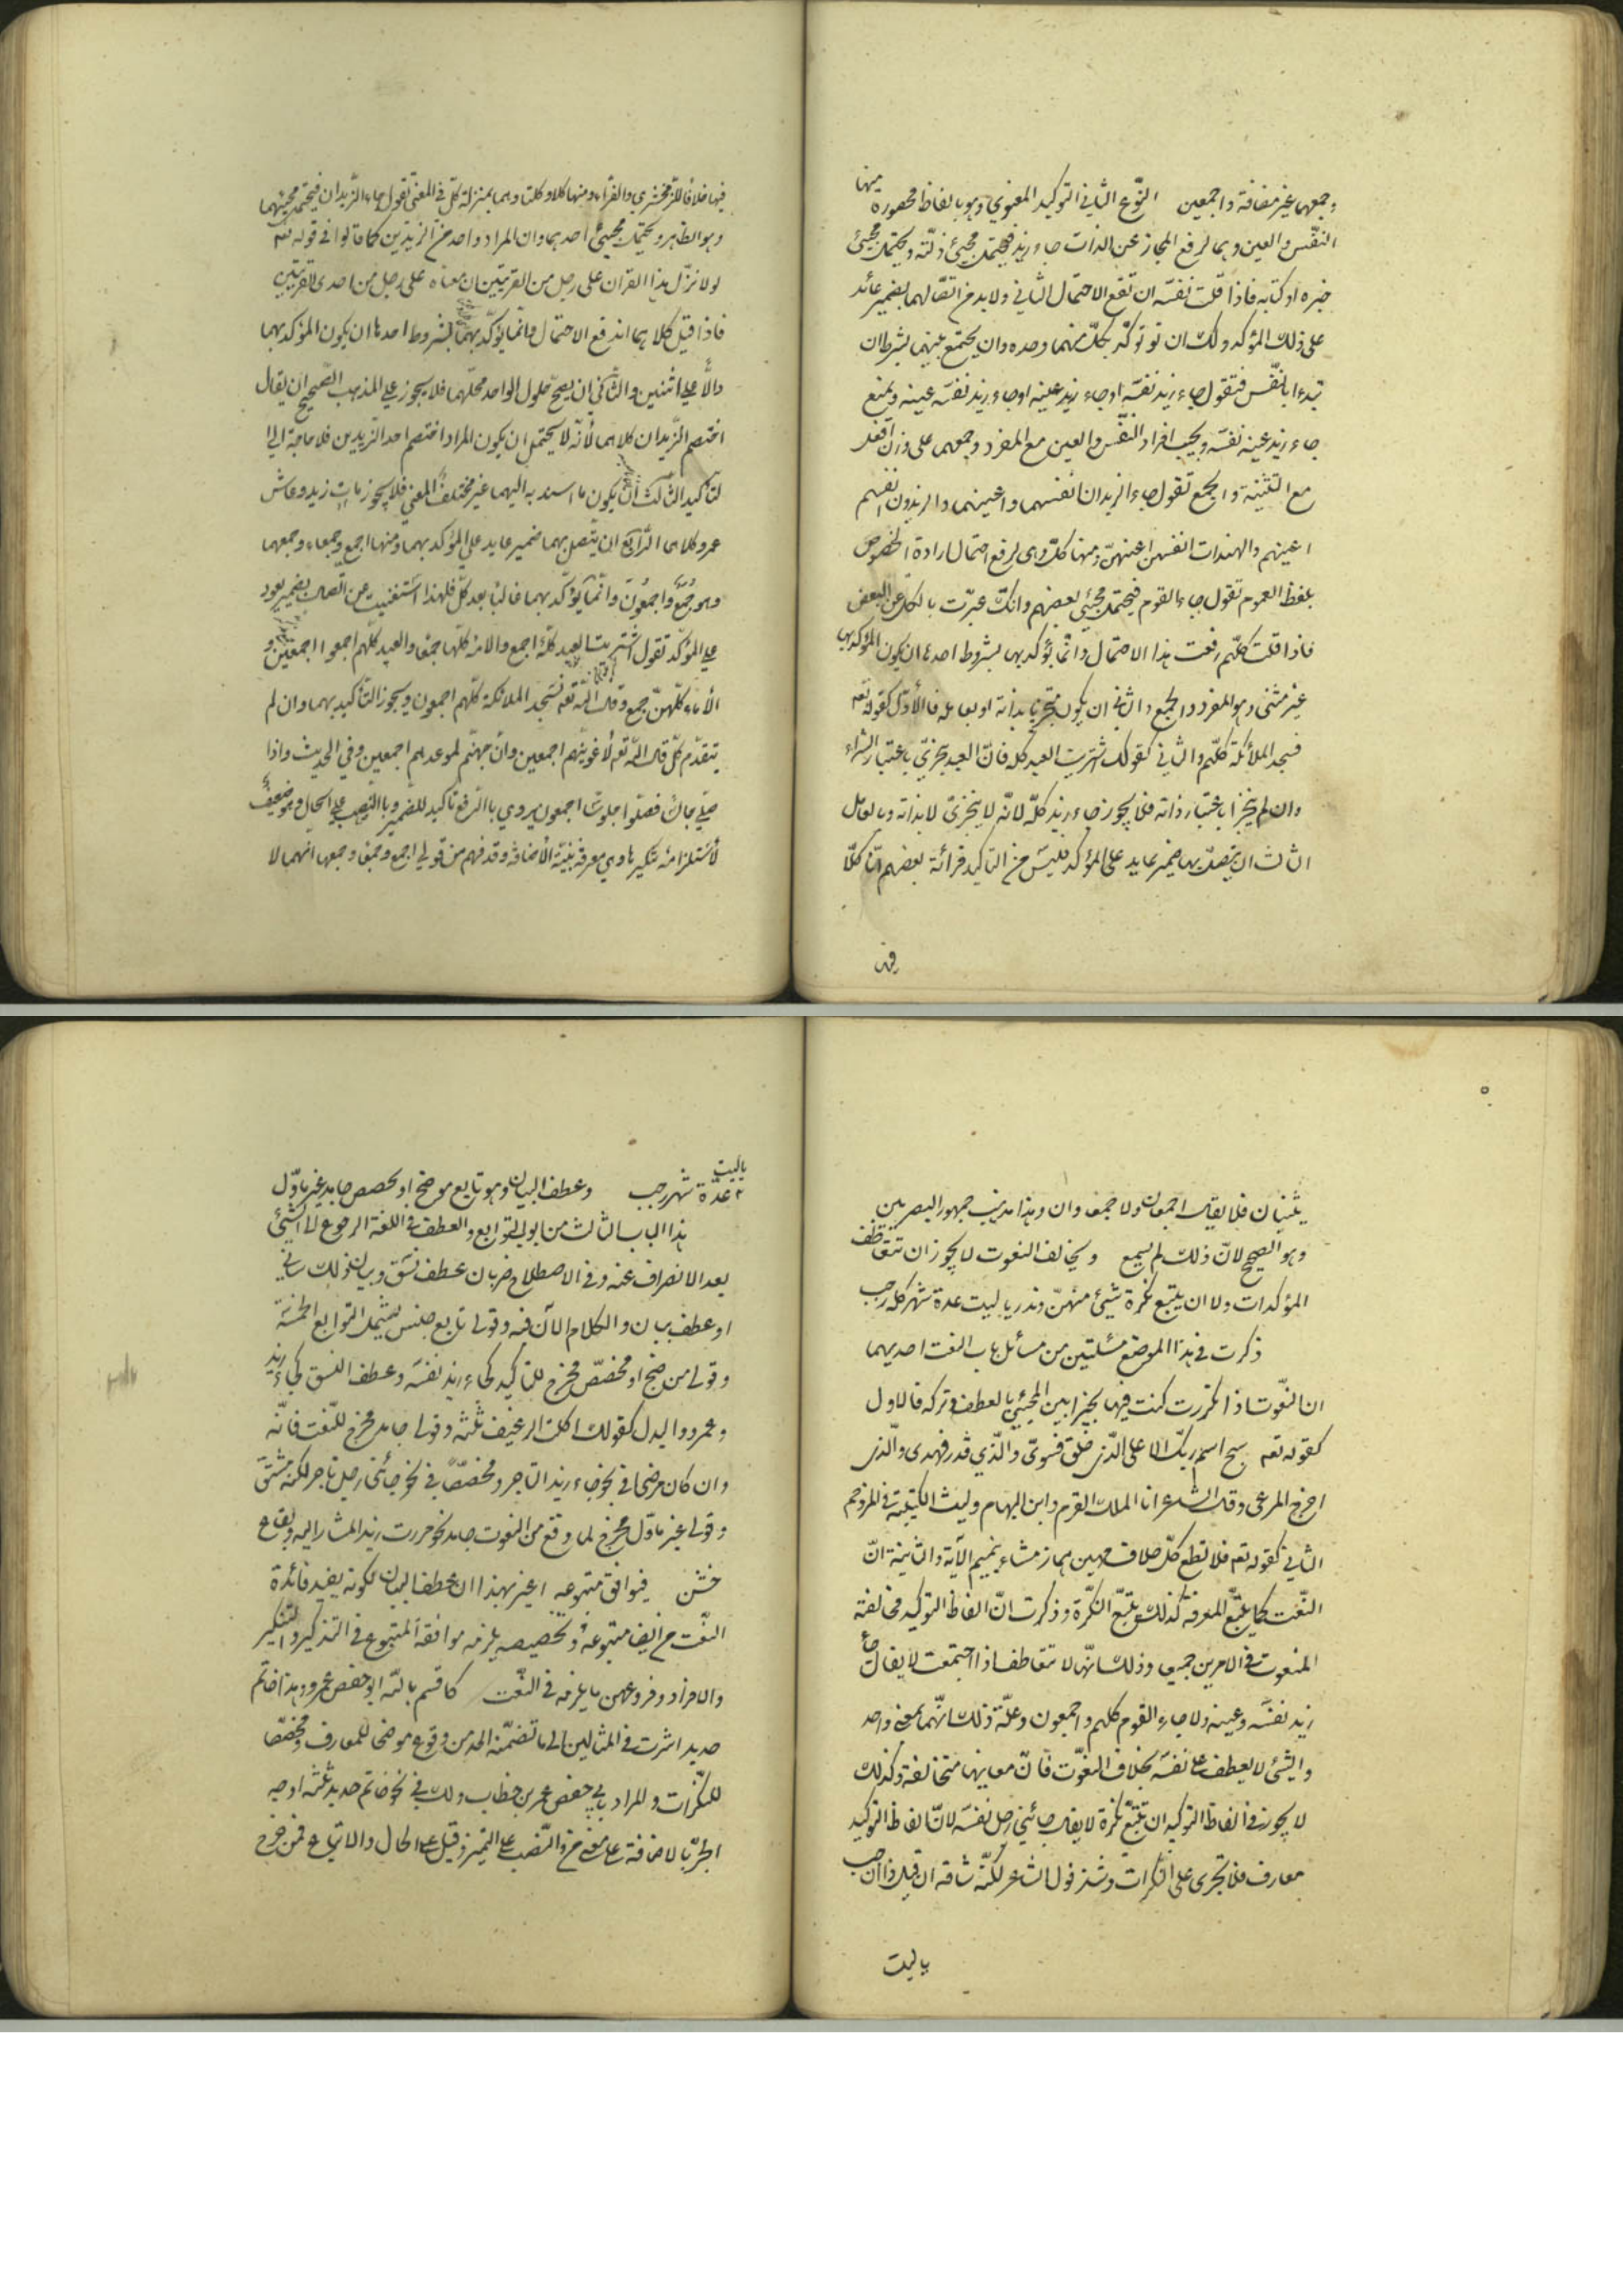 وجمعهما غير مضافة واجمعين النّوع الثّاني التوكيد المعنوي وهو بالفاظ محصورة منها
النّفس والعين وهما لرفع المجاز عن الذات جاء زيد فيحتمل مجيئ ذاته ويحتمل مجيئ
خبره او كتابه فاذا قلت نفسه ارتفع الاحتمال الثاني ولا بد من اتصالهما بضمير عائد
على ذلك المؤكد ولك ان توكّد بكلّ منهما وحده وان يجتمع بينهما بشرط ان
تبدء بالنّفس فتقول جاء زيد نفسه او جاء زيد عينه او جاء زيد نفسه عينه ويمتنع
جاء زيد عينه نفسه ويجب افراد النّفس والعين مع المفرد وجمعهما على وزن افعل
مع التثنية والجمع تقول جاء الزيدان انفسهما واعينهما والزيدون انفسهم
اعينهم والهندات انفسهن اعينهنّ ومنها كلّ وهى لرفع احتمال ارادة الخصوص
بلفظ العموم تقول جاء القوم فيحتمل مجيئ بعضهم وانك عبّرت بالكل عن البعض
فاذا قلت كلّهم رفعت هذا الاحتمال وانّما يؤكد بها بشروط احدها ان يكون المؤكد بها
غير مثنى وهو المفرد والجمع والثانى ان يكون متجزيا بذاته او بعامله فالأوّل كقوله تعه
فسجد الملائكة كلّهم والثاني كقولك اشتريت العبد كله فانّ العبد يتجزّى باعتبار الشراء
وان لم يتجزّا باعتبار ذاته فلا يجوز جاء زيد كلّه لانّه لا يتجزىّ لا بذاته ولا بعامل
الثالث ان يتصل بها ضمير عايد على المؤكد فليس من التاكيد قرائة بعضهم انّا كلّا
فيها
فيها خلافا للزّمخشري والفرّاء ومنها كلا وكلتا وهما بمنزلة كلّ في المعنى تقول جاء الزّيدان فيحتمل مجيئهما
وهو الظاهر ويحتمل مجيئ احدهما وان المراد واحد من الزيدين كما قالوا في قوله تعه
لولا نزّل هذا القران على رجل من القريتين ان معناه على رجل من احدى القريتين
فاذا قيل كلاهما اندفع الاحتمال وانّما يؤكد بهما بشروط احدها ان يكون المؤكد بهما
دالّا على اثنين والثّاني ان يصحّ حلول الواحد محلّهما فلا يجوز على المذهب الصّحيح ان يقال
اختصم الزّيدان كلاهما لأنّه لا يحتمل ان يكون المراد اختصم احد الزيدين فلا حاجة الى
لتاكيد الثالث ان يكون ما اسند به اليهما غير مختلف المعنى فلا يجوز مات زيد وعاش
عمرو كلاهما الرّابع ان يتّصل بهما ضمير عايد على المؤكد بهما ومنها اجمع وجمعاء وجمعهما
وهو جُمَعُ واجمعُونَ وانّما يؤكّد بهما غالبًا بعد كلّ فلهذا استغنيت عن اتّصالها بضمير يعود
على المؤكّد تقول اشتريت العبد كلّه اجمع والامة كلّها جمعا والعبيد كلّهم اجمعوا اجمعين و
الأماء كلّهنّ جمع وقال الله تعه فسجد الملائكة كلّهم اجمعون ويجوز التأكيد بهما وان لم
يتقدّم كلّ قال الله تعه لأغوينّهم اجمعين وانّ جهنّم لموعدهم اجمعين وفي الحديث واذا
صلّى جالسًا فصلّوا جلوسًا اجمعون يروي بالرّفع تاكيد للضّمير وبالنّصب على الحال وهو ضعيف
لأستلزامه تنكيرها وهي معرفة بنيّة الأضافة وقد فهم من قولي اجمع وجمعا وجمعهما انّهما لا
يثنيان فلا يقال اجمعان ولا جمعاوان وهذا مذهب جمهور البصريين
وهو الصّحيح لانّ ذلك لم يسمع ويخالف النعوت لا يجوز ان تتعاطف
المؤكدات ولا ان يتبع نكرة شيئ منهنّ وندر يا ليت عدة شهر كله رجب
ذكرت في هذا الموضع مسئلتين من مسائل باب النعت احديهما
ان النّعوت اذا تكررت كنت فيها بخيرا بين المجيئ بالعطف وتركه فالاول
كقوله تعه سبح اسم ربّك الاعلى الّذى خلق فسوىّ والّذي قدر فهدى والّذى
اخرج المرعى وقال الشاعر انا الملك القرم وابن الهمام وليث الكتيبة في المزدحم
الثاني كقوله تعه فلا تطع كلّ حلاف مهين هماز مشاء بنميم الآية والثانية انّ
النّعت كما يتبع المعرفة كذلك يتبع النكّرة وذكرت انّ الفاظ التوكيد مخالفة
المنعوت في الامرين جميعا وذلك انّها لا تتعاطف اذا اجتمعت لا يقال جاء
زيد نفسه وعينه ولا جاء القوم كلهم واجمعون وعلّة ذلك انّهما بمعنى واحد
والشّئ لا يعطف على نفسه بخلاف النعوّت فانّ معانيها متخالفة وكذلك
لا يجوز في الفاظ التوكيد ان تتبع نكرة لا يقال جائني رجل نفسه لانّ الفاظ التوكيد
معارف فلا تجرى على النكرات وشذ قول الشاعر لكنّه شاقه ان قيل ذا رجب
ياليت
ياليت
عدّة شهر رجب وعطف البيان وهو تابع موضح او مخصص جامد غير مأوّل
هذا الباب الثالث من ابواب التوابع والعطف في اللغة الرجوع الى الشيئ
بعد الانصراف عنه وفي الاصطلاح ضربان عطف نسق وبيان ذلك سيأتي
او عطف بيان والكلام الآن فيه وقولى تابع جنس يشمل التوابع الخمسة
وقولى موضح او مخصّص مخرج للتاكيد كجاء زيد نفسه وعطف النسق كجاء زيد
وعمرو والبدل كقولك اكلت الرغيف ثلثه وقولى جامد مخرج للنّعت فانّه
وان كان موضحا في نحو جاء زيد التاجر ومخصّصًا في نحو جائنى رجل تاجر لكنه مشتق
وقولى غير مأوّل مخرج لما وقع من النعوت جامدا نحو مررت بزيد المشار اليه وبقاع
خشن فيوافق متبوعه اعنى بهذا ان عطف البيان لكونه يفيد فائدة
النّعت من ايضاح متبوعه وتخصيصه يلزمه موافقة المتبوع في التذكير والتنكير
والافراد وفروعهن ما يلزمه في النّعت كاقسم بالله ابو حفص عمرو وهذا خاتم
حديد اشرت في المثالين الى ما تضمّنه الحد من وقوعه موضحا للمعارف ومخصّصا
للنكّرات والمراد بابي حفص عمر بن خطاب ولك في نحو خاتم حديد ثلثه اوجه
الجرّ بالاضافة على معنى من والنّصب على التميز وقيل على الحال والاتباع فمن خرج